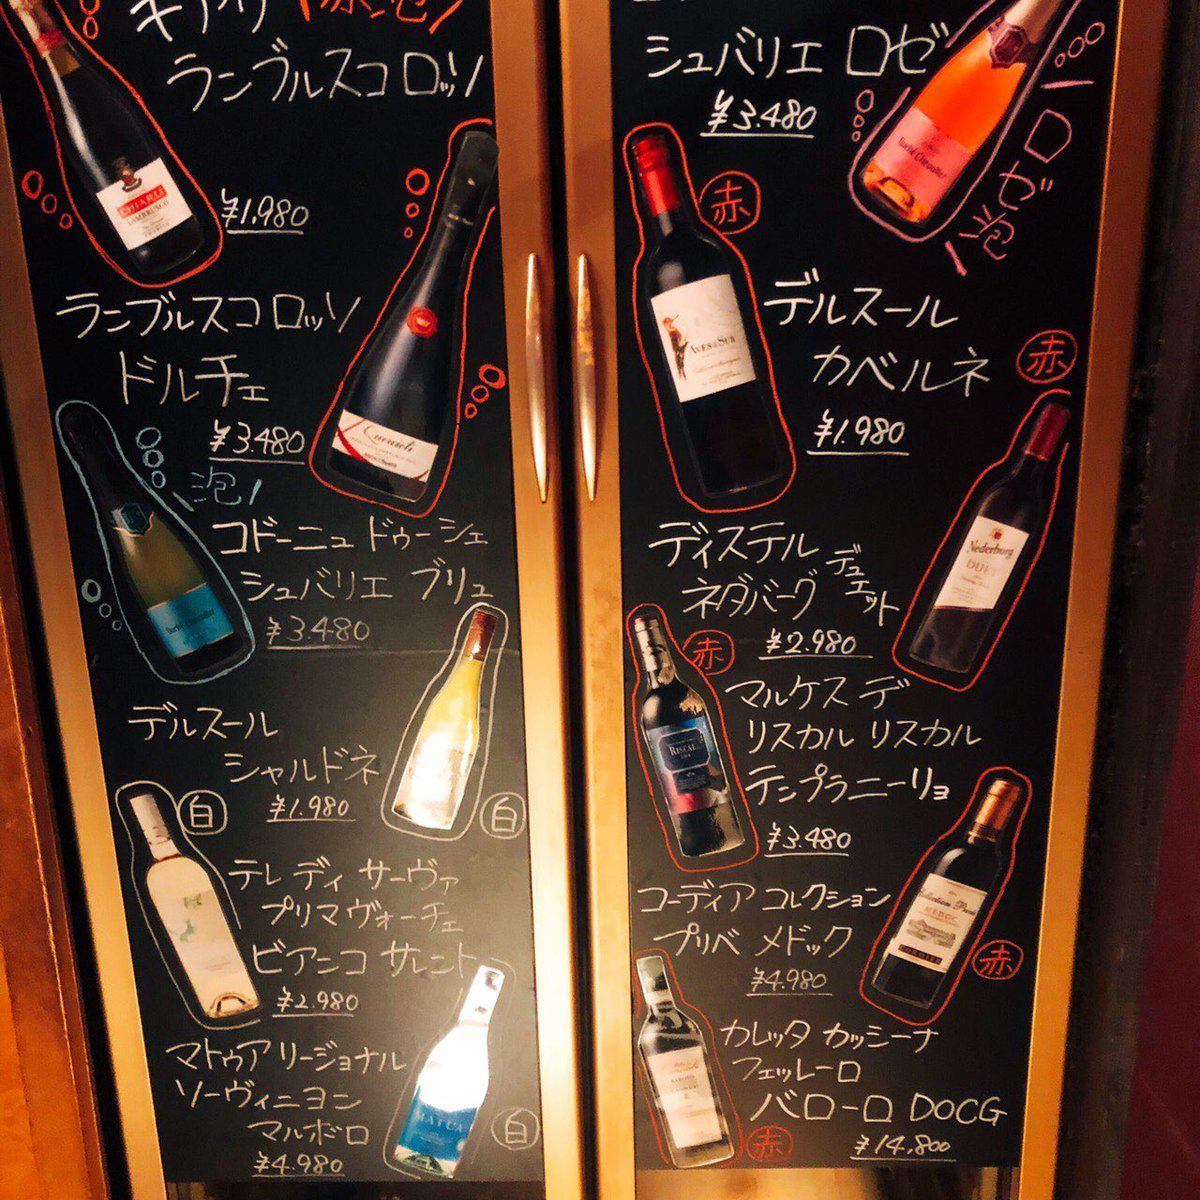 キアリ \赤泡/
ランブルスコ ロッソ
¥1.980
CHIARLI
LAMBRUSCO
ランブルスコ ロッソ
ドルチェ
¥3.480
\泡/
コドーニュ ドゥーシェ
シュバリエ ブリュ
¥3.480
デルスール
シャルドネ
¥1.980
白
白
テレ ディ サーヴァ
プリマ ヴォーチェ
ビアンコ サレント
¥2.980
マトゥア リージョナル
ソーヴィニヨン
マルボロ
¥4.980
白
MATUA
シュバリエ ロゼ
¥3.480
\泡ゼロ/
赤
AVES DEL SUR
デルスール
カベルネ
¥1.980
赤
Nederburg
ディステル
ネダバーグ
デュエット
¥2.980
赤
RISCAL
マルケス デ
リスカル リスカル
テンプラニーリョ
¥3.480
コーディア コレクション
プリベ メドック
¥4.980
MEDOC
赤
カレッタ カッシーナ
フェッレーロ
バローロ DOCG
¥14.800
赤